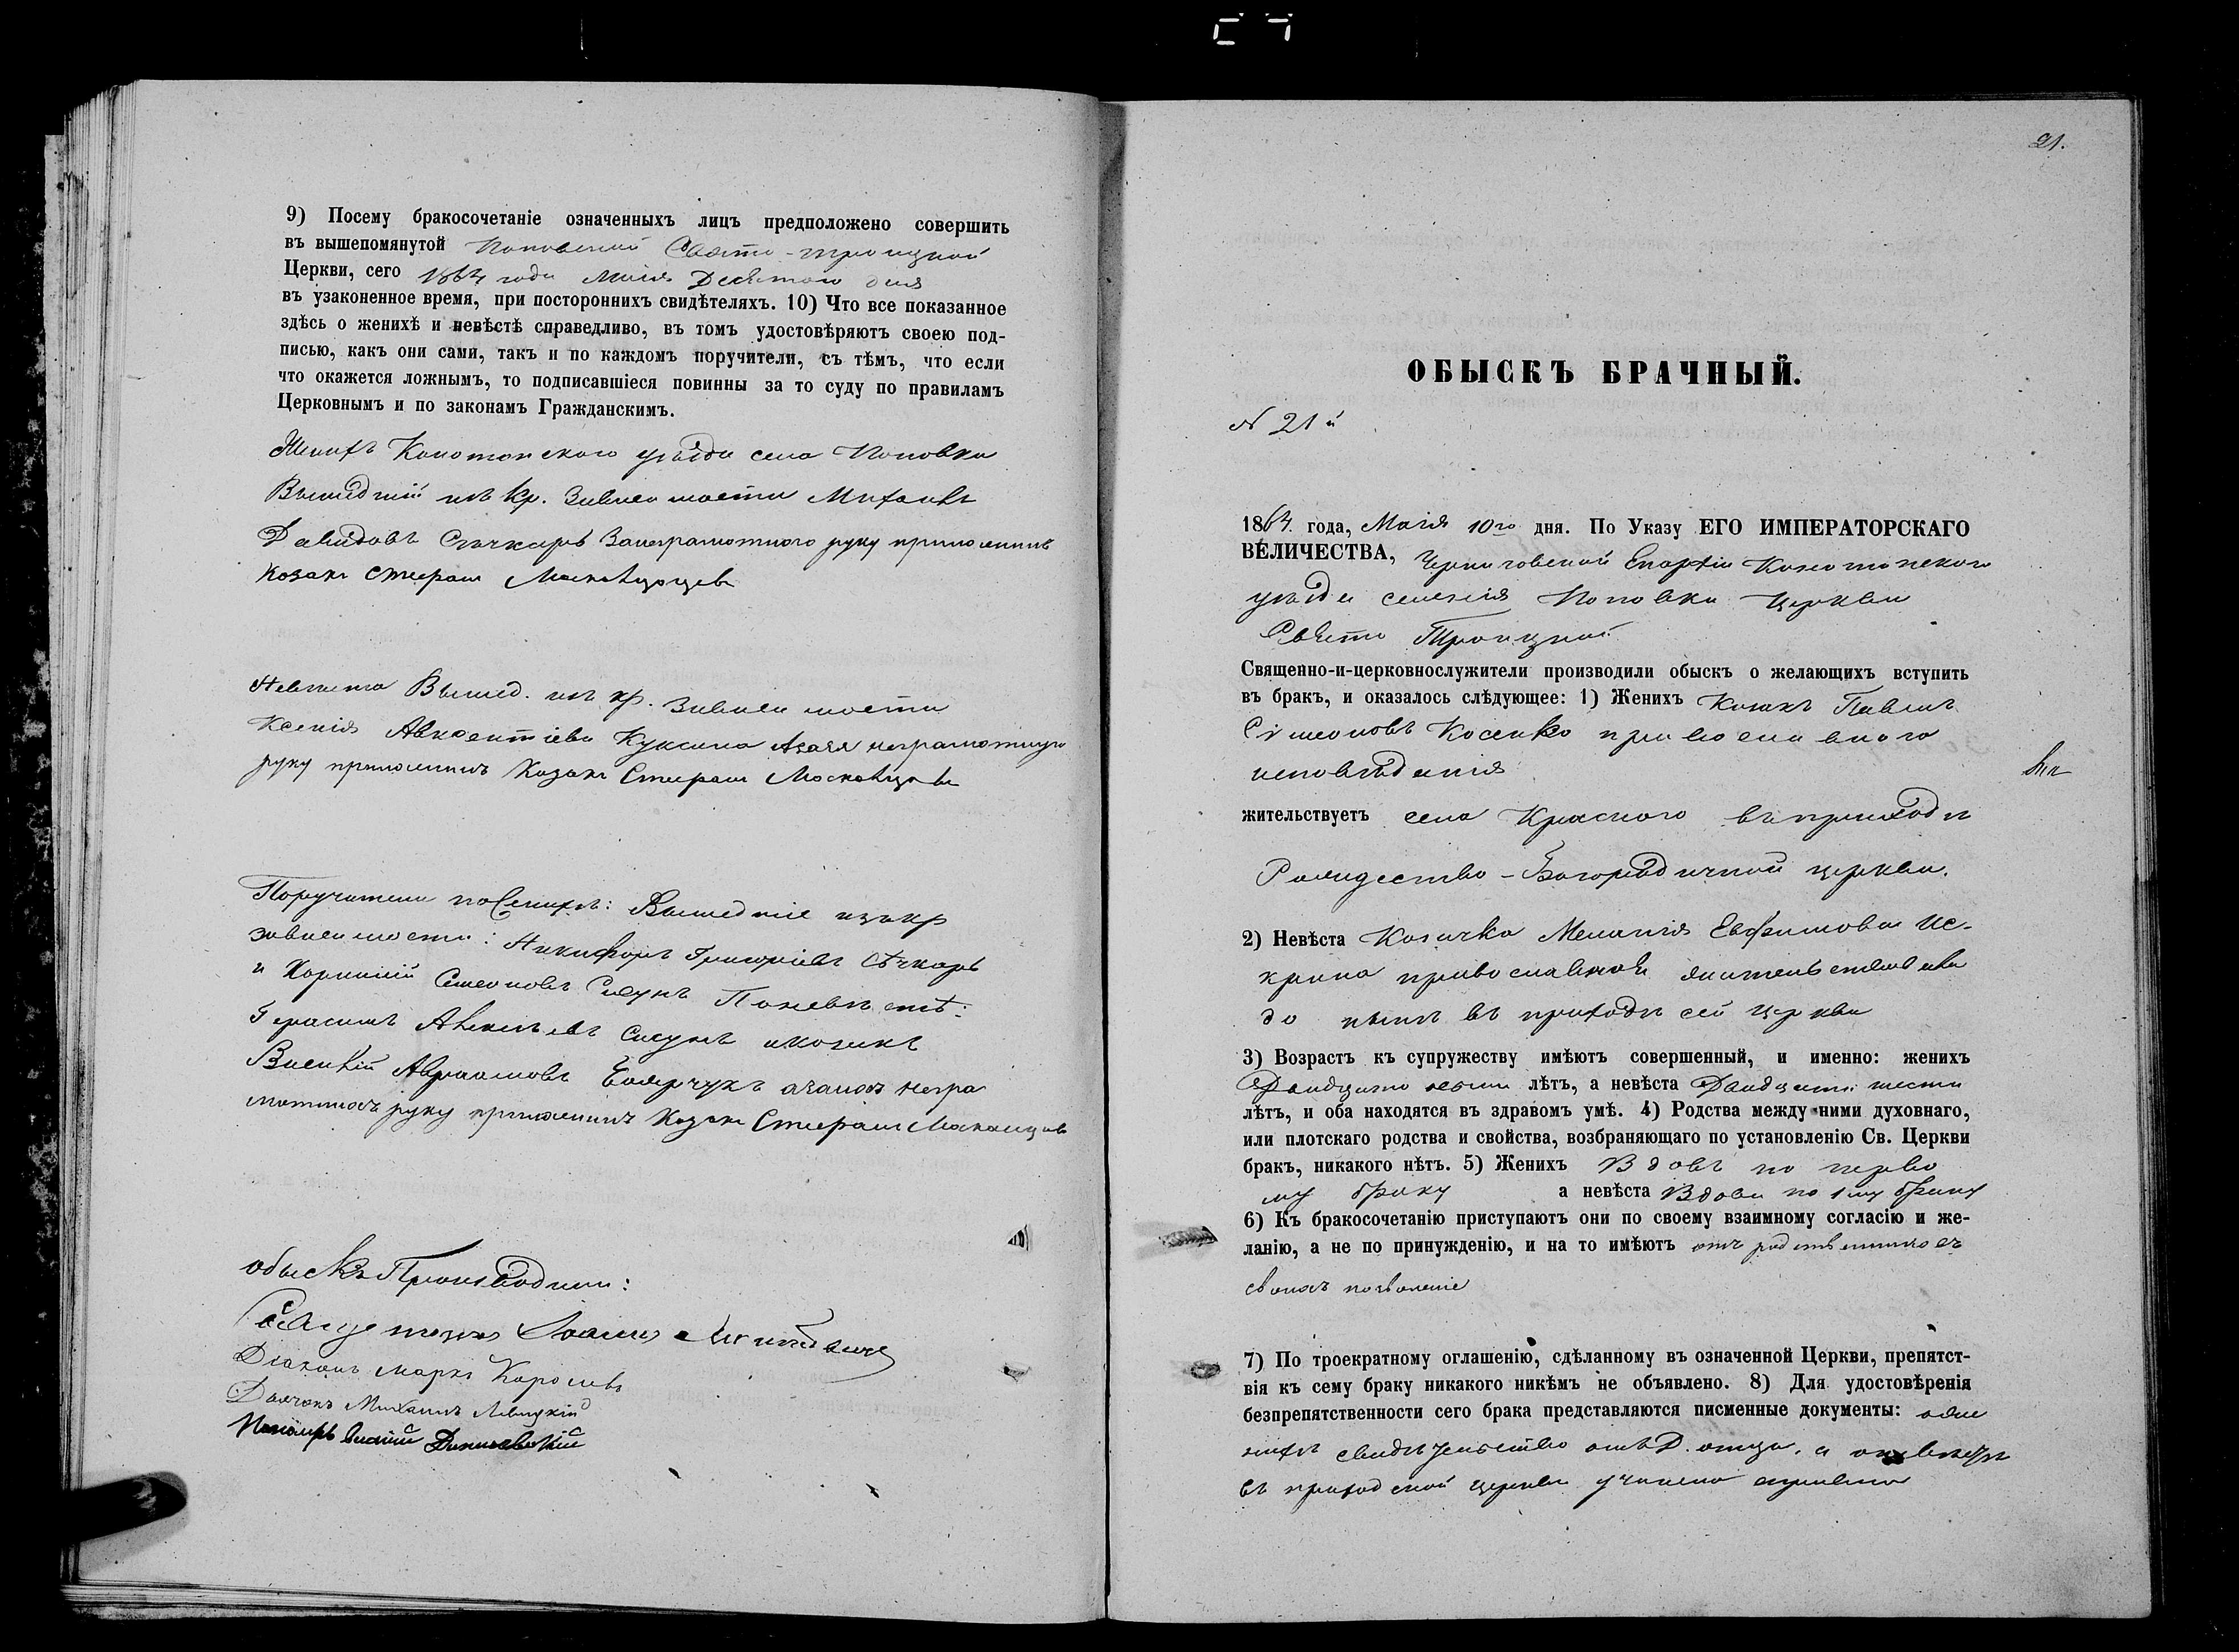 9) Посему бракосочетаніе означенныхъ лицъ предположено совершить
въ вышепомянутой Поповской Свято-Троицкой
Церкви, сего 1864 года Маія Десятого дня
въ узаконенное время, при постороннихъ свидѣтеляхъ. 10) Что все показанное
здѣсь о женихѣ и невѣстѣ справедливо, въ томъ удостовѣряютъ своею под-
писью, какъ они сами, такъ и по каждомъ поручители, съ тѣмъ, что если
что окажется ложнымъ, то подписавшіеся повинны за то суду по правиламъ
Церковнымъ и по законамъ Гражданскимъ.
Женихъ Конотопского уѣзда села Поповки
Вышедшій изъ кр. Зависимости Михаилъ
Давидовъ Сѣчкарь Занеграмотного руку приложилъ
Козакъ
Невѣста Вышед. изъ кр. Зависимости
Ксенія Авксентіева Куксина Азаея неграмотную
руку приложилъ Козакъ
Поручители поЖенихѣ: Вышедшіе изъ кр
зависимости: Никифоръ Григоріевъ Сѣчкарь
и Корнилій Симеоновъ Сисунъ Поневѣстѣ:
Герасимъ Алексѣевъ Сисунъ икозакъ
Василій Авраамовъ азаихъ негра
мотныхъ руку приложилъ Козакъ
обыскъ Производили:
Священникъ Іоаннъ
Діаконъ Маркъ Королевъ
Дьячокъ Михаилъ Левицкій
Пономарь
21.
ОБЫСКЪ БРАЧНЫЙ.
N 21й
1864 года, Маія 10го дня. По Указу ЕГО ИМПЕРАТОРСКАГО
ВЕЛИЧЕСТВА, Черниговской Епархіи Конотопского
уѣзда селенія Поповки Церкви
Свято Троицкой
Священно-и-церковнослужители производили обыскъ о желающихъ вступить
въ бракъ, и оказалось слѣдующее: 1) Женихъ Козакъ Павелъ
Сімеоновъ Косенко православного
исповѣданія
жительствуетъ села Красного въ приходѣ
Рождество-Богородичной церкви.
2) Невѣста Козачка Меланія Евфимова Ис-
крина православной жительствовала
до нынѣ въ приходѣ сей Церкви
3) Возрастъ къ супружеству имѣютъ совершенный, и именно: женихъ
Двадцати лѣтъ, а невѣста Двадцати шести
лѣтъ, и оба находятся въ здравомъ умѣ. 4) Родства между ними духовнаго,
или плотскаго родства и свойства, возбраняющаго по установленію Св. Церкви
бракъ, никакого нѣтъ. 5) Женихъ Вдовъ по перво
му браку а невѣста Вдова по 1му браку
6) Къ бракосочетанію приступаютъ они по своему взаимному согласію и же-
ланію, а не по принужденію, и на то имѣютъ отъ родственниковъ
своихъ позволеніе
7) По троекратному оглашенію, сдѣланному въ означенной Церкви, препятст-
вія къ сему браку никакого никѣмъ не объявлено. 8) Для удостовѣренія
безпрепятственности сего брака представляются писменные документы: о же
нихѣ свидѣтельство отъ Д. отца, а о невѣстѣ
въ приходской церкви учинена справка